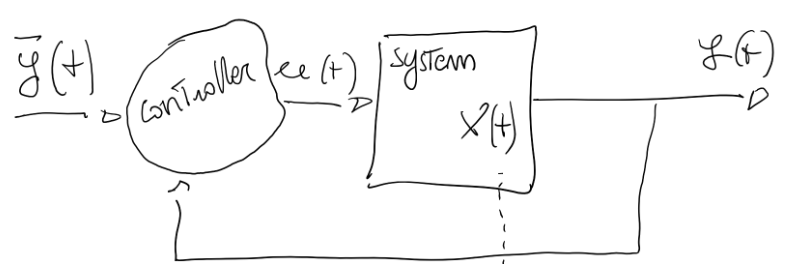 ȳ(t)
controller
u(t)
system
x(t)
y(t)